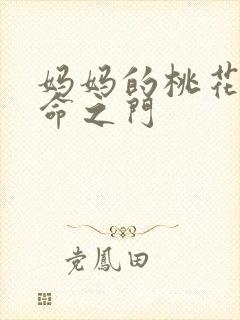 妈妈的桃花
命之門
党鳳田